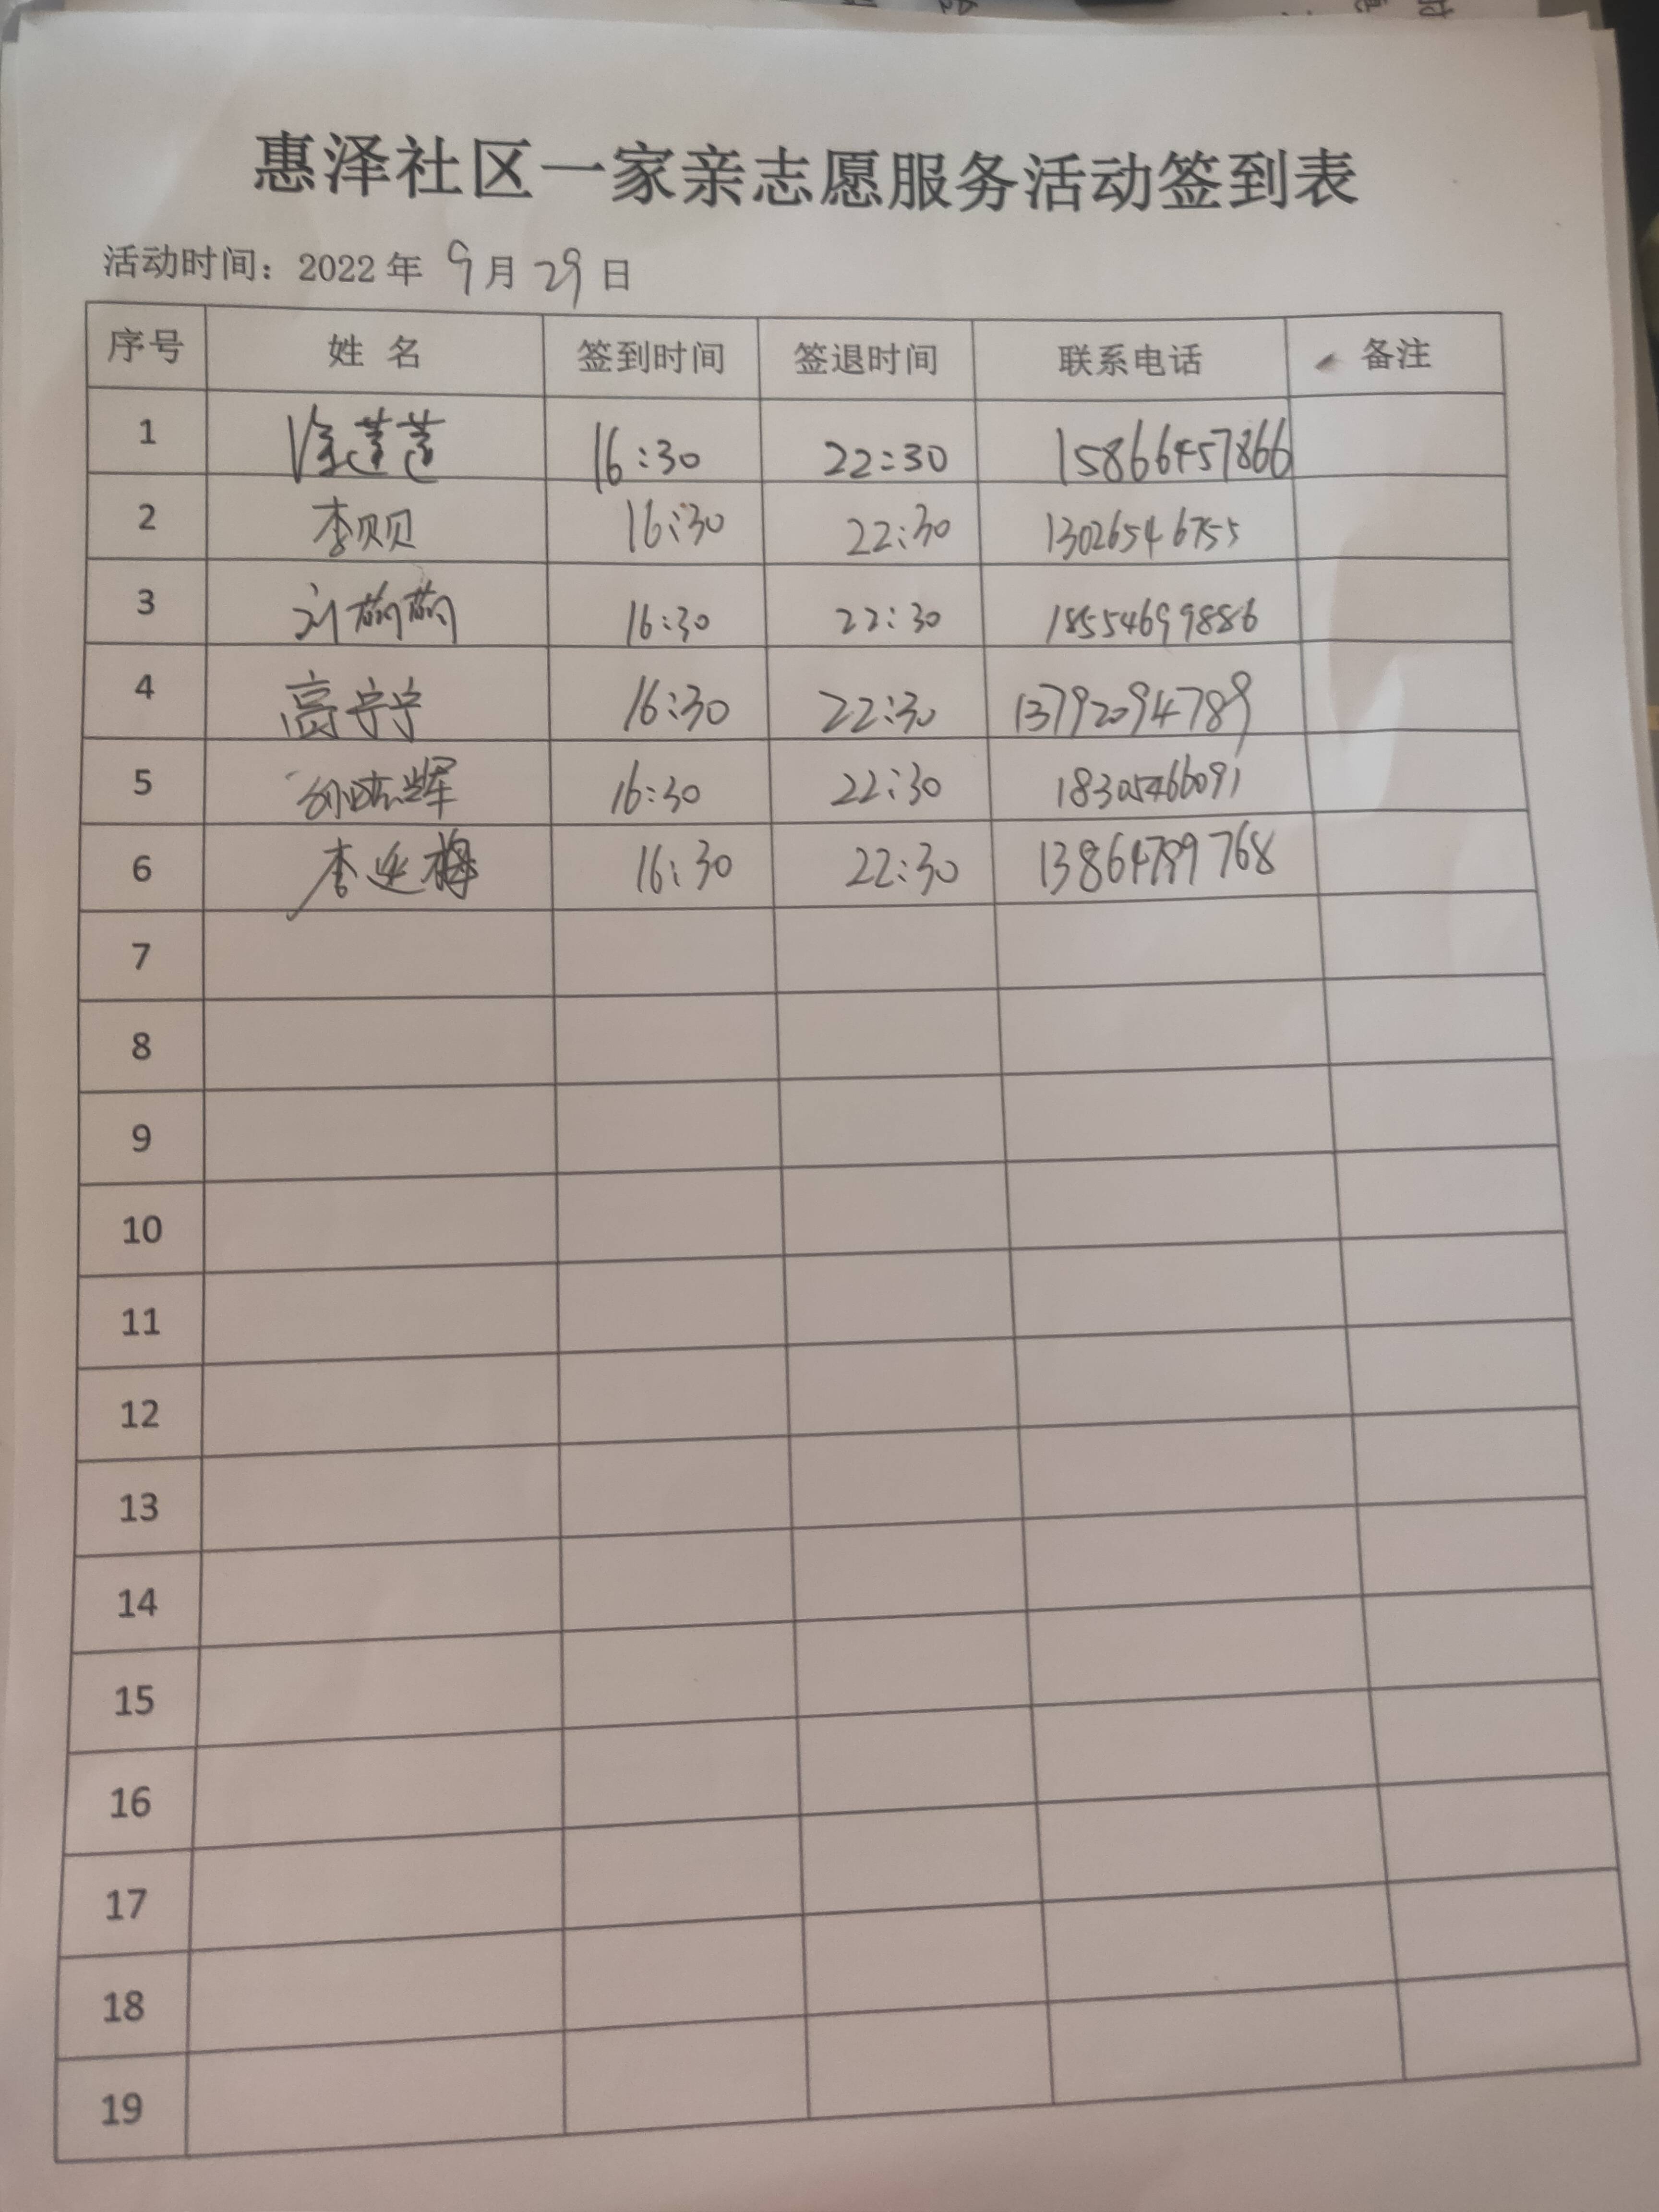 惠泽社区一家亲志愿服务活动签到表
活动时间：2022年 9月29日
序号 姓 名 签到时间 签退时间 联系电话 备注
1 徐莲莲 16:30 22:30 15866457866
2 李贝贝 16:30 22:30 13026546755
3 16:30 22:30 18554699886
4 高宁宁 16:30 22:30 13792094789
5 16:30 22:30 18305466091
6 李延梅 16:30 22:30 13864789768
7
8
9
10
11
12
13
14
15
16
17
18
19